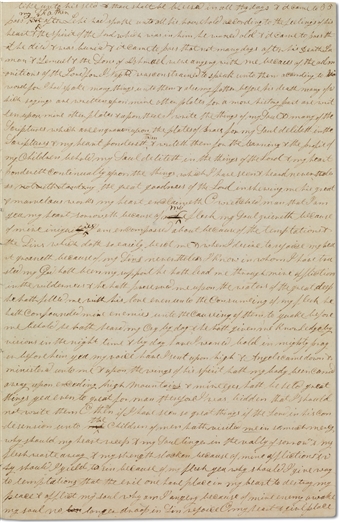 had spoken unto all his household according to the feelings of his
heart & the spirit of the Lord which was in him he waxed old & it came to pass th
at he died & was buried & it came to pass that not many days after his death La
man & Lemuel & the Sons of Ishmael were angry with me because of the adm
onitions of the Lord for I Nephi was constrained to speak unto them according to his
word for I had spake many things unto them & also my father before his death many of w
hich sayings are written upon mine other plates for a more history part are writ
ten upon mine other plates & upon these I write the things of my Soul & many of the
Scriptures which are engraven upon the plates of brass for my Soul delighteth in the
Scriptures & my heart pondereth them & writeth them for the learning & the profit of
my Children behold my Soul delighteth in the things of the Lord & my heart
pondereth continually upon the things which I have seen & heard nevertheless
notwithstanding the great goodness of the Lord in shewing me his great
& marvelous works my heart exclaimeth O wretched man that I am
yea my heart sorroweth because of my flesh my Soul grieveth because
of mine iniquities I am encompassed about because of the temptations &
the Sins which doth so easily beset me & when I desire to rejoice my heart
groaneth because of my Sins nevertheless I know in whom I have trus
ted my God hath been my support he hath led me through mine afflictions
in the wilderness & he hath preserved me upon the waters of the great deep
he hath filled me with his love even unto the Consuming of my flesh he
hath Confounded mine enemies unto the Causing of them to quake before
me behold he hath heard my Cry by day & he hath given me knowledge by
visions in the night time & by day have I waxed bold in mighty pray
er before him yea my voice have I sent up on high & Angels came down &
ministered unto me & upon the wings of his spirit hath my body been carried
away upon exceeding high Mountains & mine eyes hath beheld great
things yea even to great for man therefore I was bidden that I should
not write them O then if I have seen so great things if the Lord in his Con
descension unto the Children of men hath visited me in so much mercy
why should my heart weep & my Soul linger in the valley of sorrow & my
flesh waste away & my strength slacken because of mine afflictions &
why should I yield to sin because of my flesh yea why should I give way
to temptations that the evil one have place in my heart to destroy my
peace & afflict my soul why am I angry because of mine enemy awake
my soul no longer droop in Sin rejoice O my heart & give place